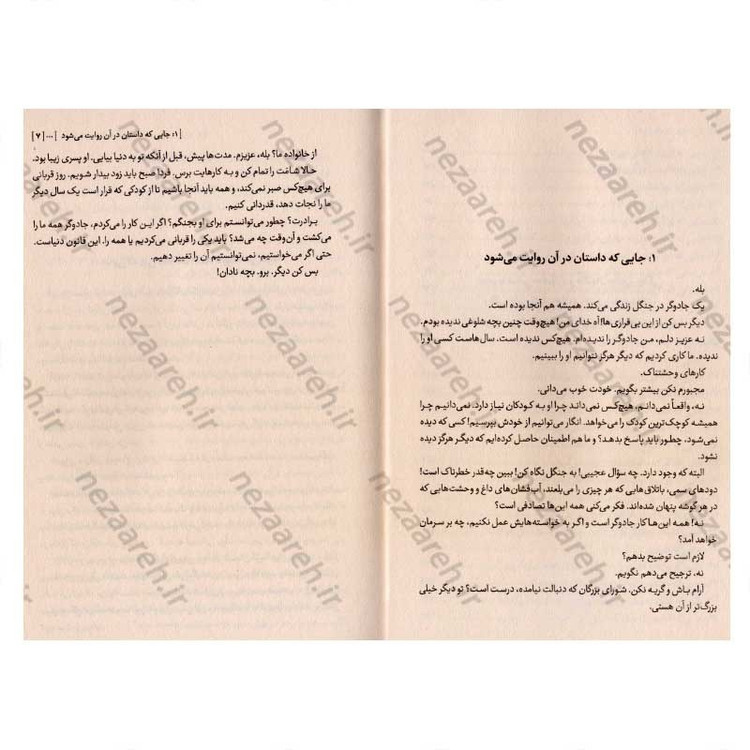 ۱: جایی که داستان در آن روایت می‌شود
بله.
یک جادوگر در جنگل زندگی می‌کند. همیشه هم آنجا بوده است.
دیگر بس کن از این بی‌قراری‌ها! آه خدای من! هیچ‌وقت چنین بچه شلوغی ندیده بودم.
نه عزیز دلم، من جادوگر را ندیده‌ام. هیچ‌کس ندیده است. سال‌هاست کسی او را
ندیده. ما کاری کردیم که دیگر هرگز نتوانیم او را ببینیم.
کارهای وحشتناک.
مجبورم نکن بیشتر بگویم. خودت خوب می‌دانی.
نه، واقعاً نمی‌دانم، هیچ‌کس نمی‌داند چرا او به کودکان نیاز دارد. نمی‌دانیم چرا
همیشه کوچک‌ترین کودک را می‌خواهد. انگار می‌توانیم از خودش بپرسیم! کسی که دیده
نمی‌شود، چطور باید پاسخ بدهد؟ و ما هم اطمینان حاصل کرده‌ایم که دیگر هرگز دیده
نشود.
البته که وجود دارد. چه سؤال عجیبی! به جنگل نگاه کن! ببین چه‌قدر خطرناک است!
دودهای سمی، باتلاق‌هایی که هر چیزی را می‌بلعند، آب‌فشان‌های داغ و وحشت‌هایی که
در هر گوشه پنهان شده‌اند. فکر می‌کنی همه این‌ها تصادفی است؟
نه! همه این‌ها کار جادوگر است و اگر به خواسته‌هایش عمل نکنیم، چه بر سرمان
خواهد آمد؟
لازم است توضیح بدهم؟
نه، ترجیح می‌دهم نگویم.
آرام باش و گریه نکن. شورای بزرگان که دنبالت نیامده، درست است؟ تو دیگر خیلی
بزرگ‌تر از آن هستی.
| ۱: جایی که داستان در آن روایت می‌شود | ... [ ۷ ]
از خانواده ما؟ بله، عزیزم. مدت‌ها پیش، قبل از آنکه تو به دنیا بیایی. او پسری زیبا بود.
حالا شامت را تمام کن و به کارهایت برس. فردا صبح باید زود بیدار شویم. روز قربانی
برای هیچ‌کس صبر نمی‌کند، و همه باید آنجا باشیم تا از کودکی که قرار است یک سال دیگر
ما را نجات دهد، قدردانی کنیم.
برادرت؟ چطور می‌توانستم برای او بجنگم؟ اگر این کار را می‌کردم، جادوگر همه ما را
می‌کشت و آن‌وقت چه می‌شد؟ باید یکی را قربانی می‌کردیم یا همه را. این قانون دنیاست.
حتی اگر می‌خواستیم، نمی‌توانستیم آن را تغییر دهیم.
بس کن دیگر. برو. بچه نادان!
nezaareh.ir